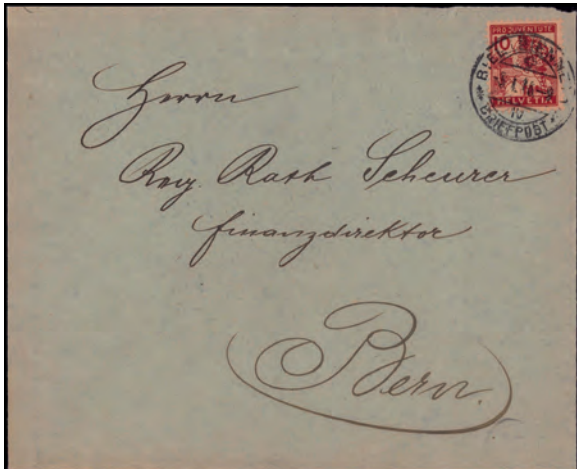 PRO JUVENTUTE
10
HELVETIA
BRIEFPOST
Herrn
Reg. Rath Scheurer
Finanzdirektor
Bern.